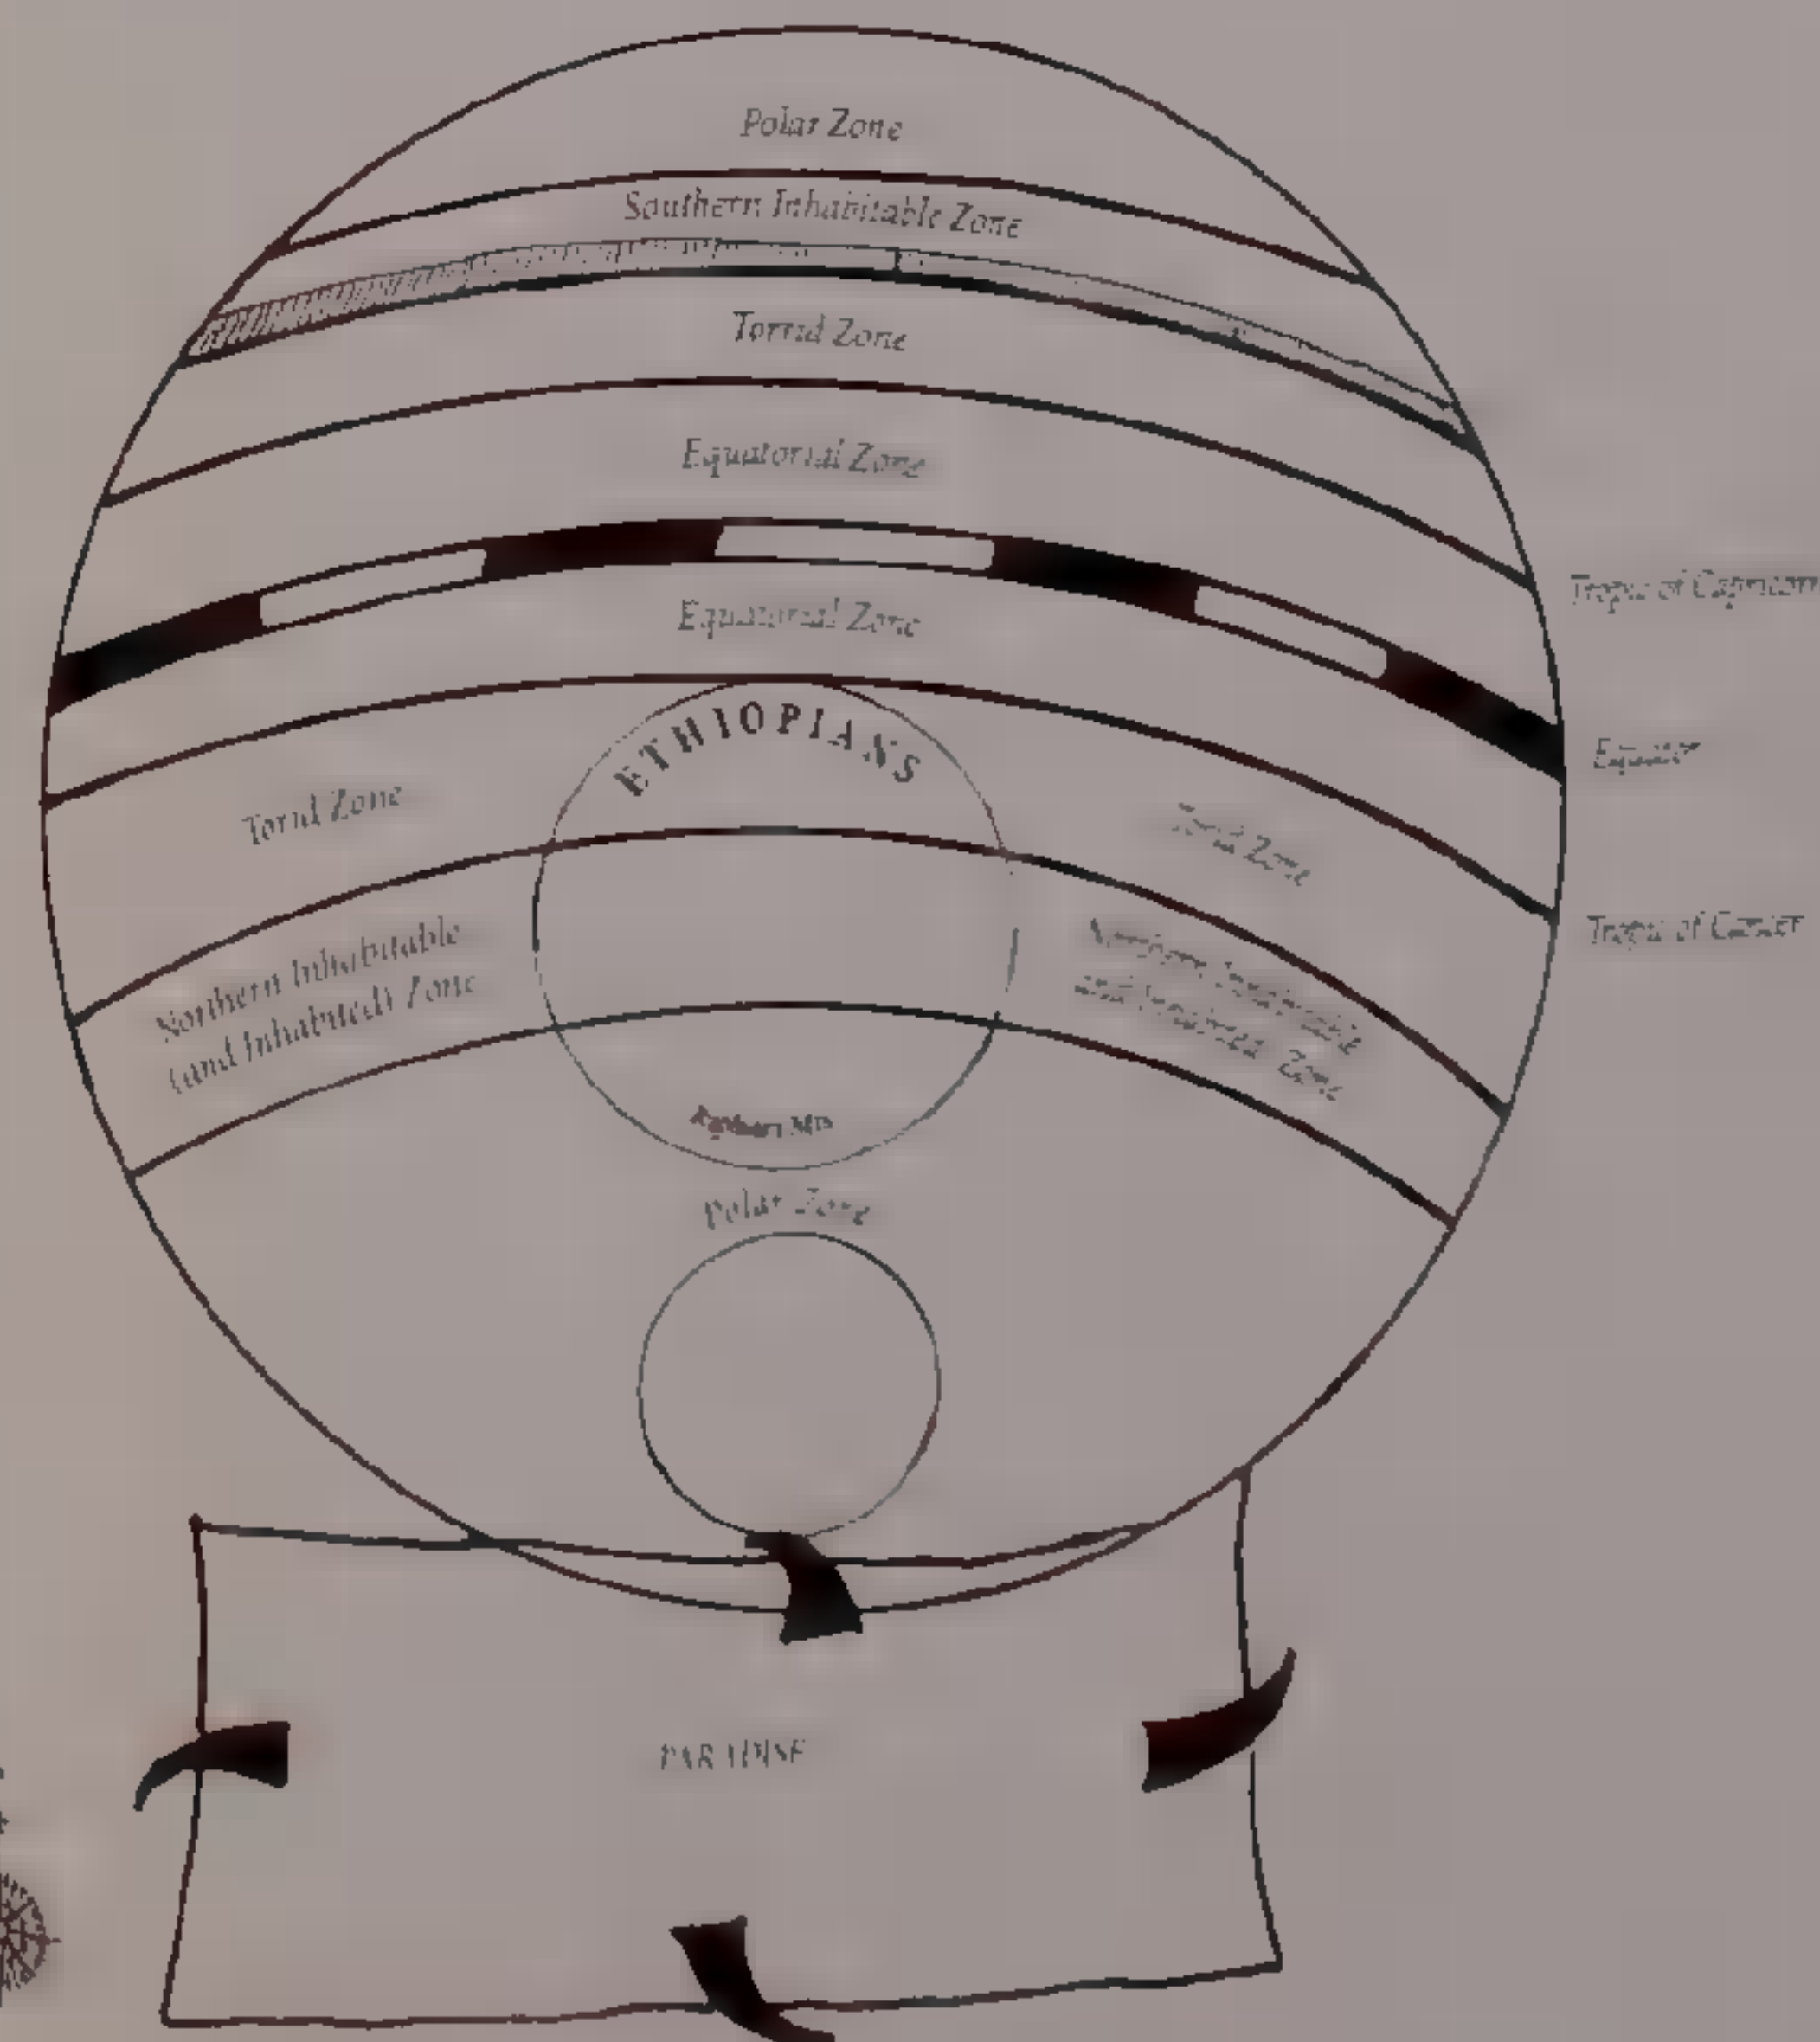 Polar Zone
Southern Inhabitable Zone
Torrid Zone
Equatorial Zone
Tropic of Capricorn
Equatorial Zone
Equator
ETHIOPIANS
Torrid Zone
Torrid Zone
Tropic of Cancer
Northern Inhabitable
(and Inhabited) Zone
Northern Inhabitable
(and Inhabited) Zone
Mts
Polar Zone
PARADISE